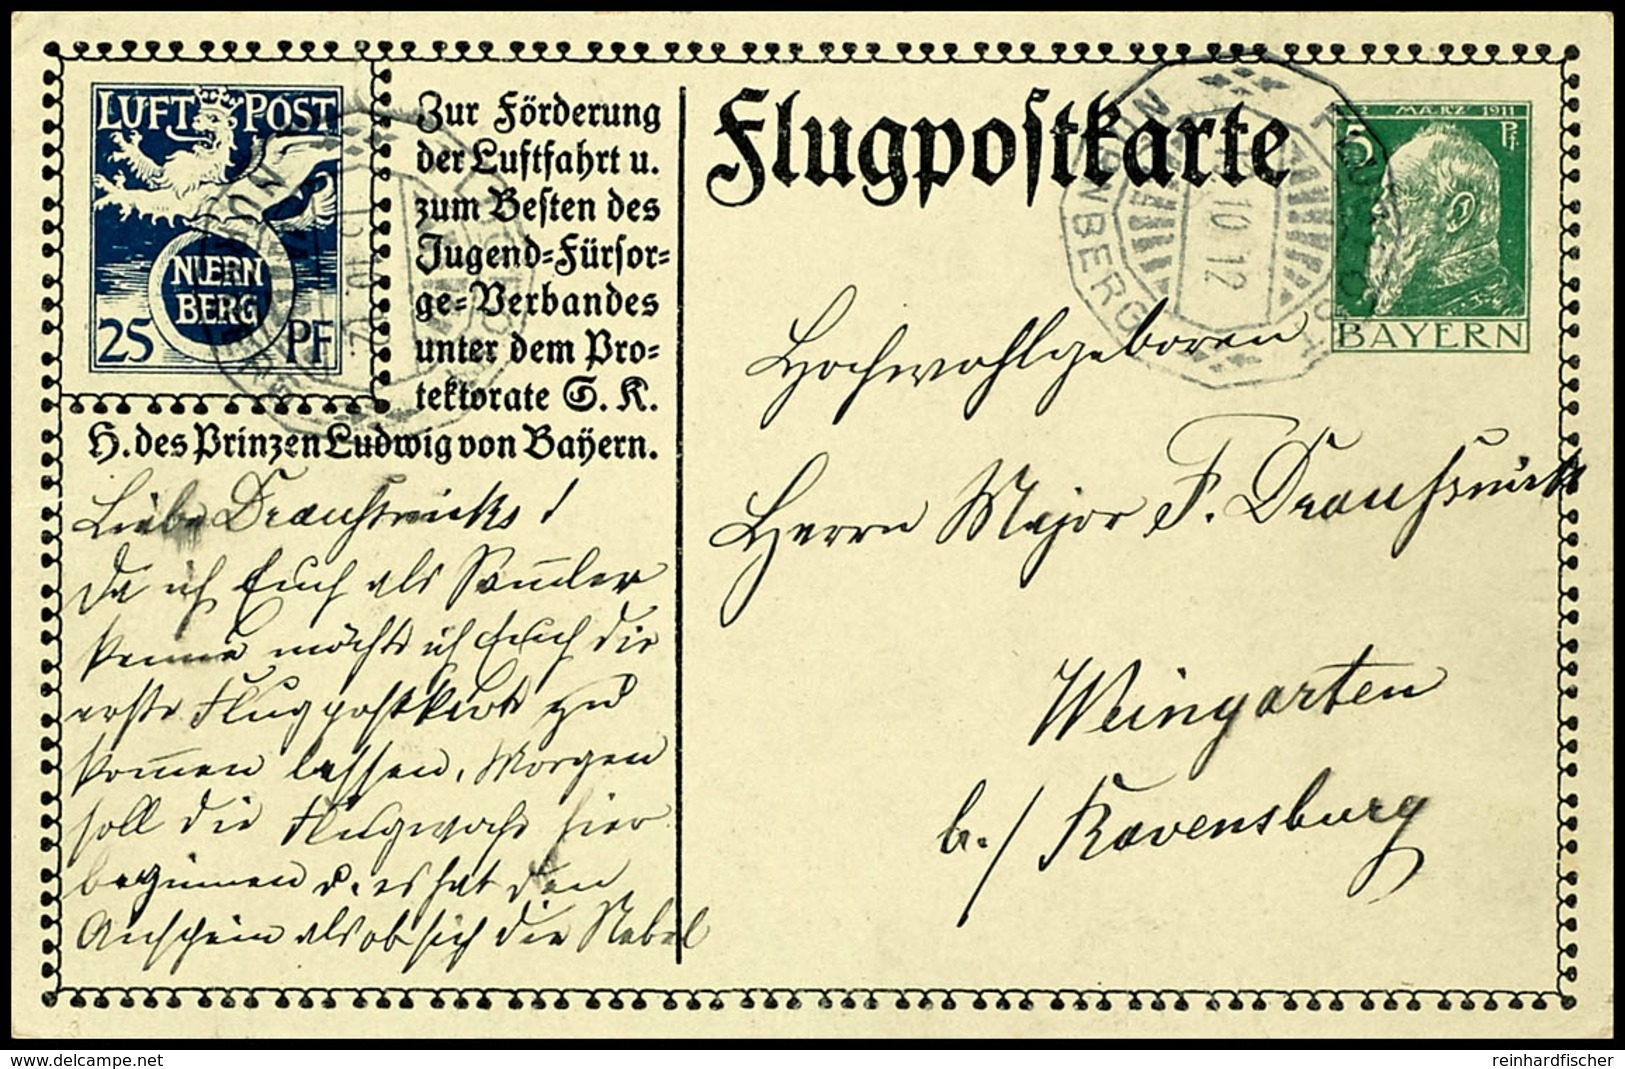 LUFT POST
NUERN
BERG
25 PF
Zur Förderung
der Luftfahrt u.
zum Besten des
Jugend-Fürsor-
ge-Verbandes
unter dem Pro-
tektorate S. K.
H. des Prinzen Ludwig von Bayern.
Flugpostkarte
NÜRNBERG
10 12
FLUGPOST
12 MÄRZ 1911
5 Pf.
BAYERN
Liebe
Da ich Euch als Sam̅ler
kenne möchte ich Euch die
erste Flugpostkarte zu
kom̅en lassen. Morgen
soll die Flugwoche hier
beginnen u. es hat den
Anschein als ob sich die Nebel
Hochwohlgeboren
Herrn Major F.
Weingarten
b./ Ravensburg
www.delcampe.net
reinhardfischer